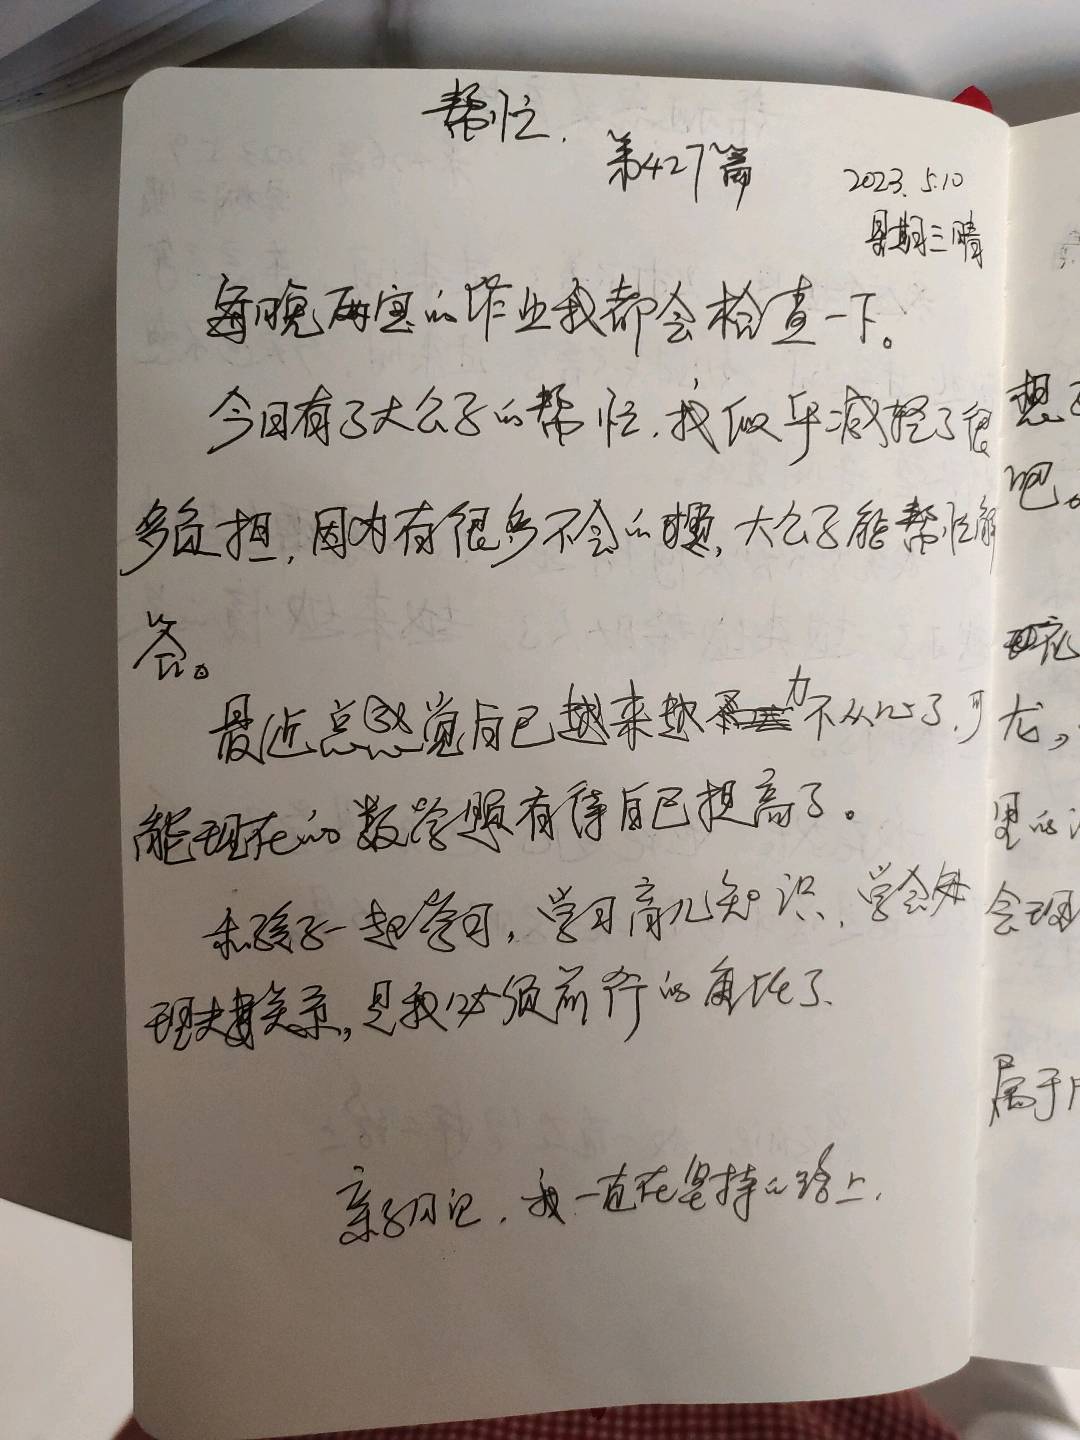 帮忙.
第427篇
2023.5.10
星期三晴
每晚两宝的作业我都会检查一下。
今日有了大公子的帮忙.我似乎减轻了很
多负担,因为有很多不会的题,大公子能帮忙解
答。
最近总感觉自己越来越力不从心了.可
能现在的数学题有待自己提高了。
和孩子一起学习,学习育儿知识.学会处
理夫妻关系,是我必须前行的
亲子日记.我一直在坚持的路上.
想
吧。
龙,
里的
会
属于